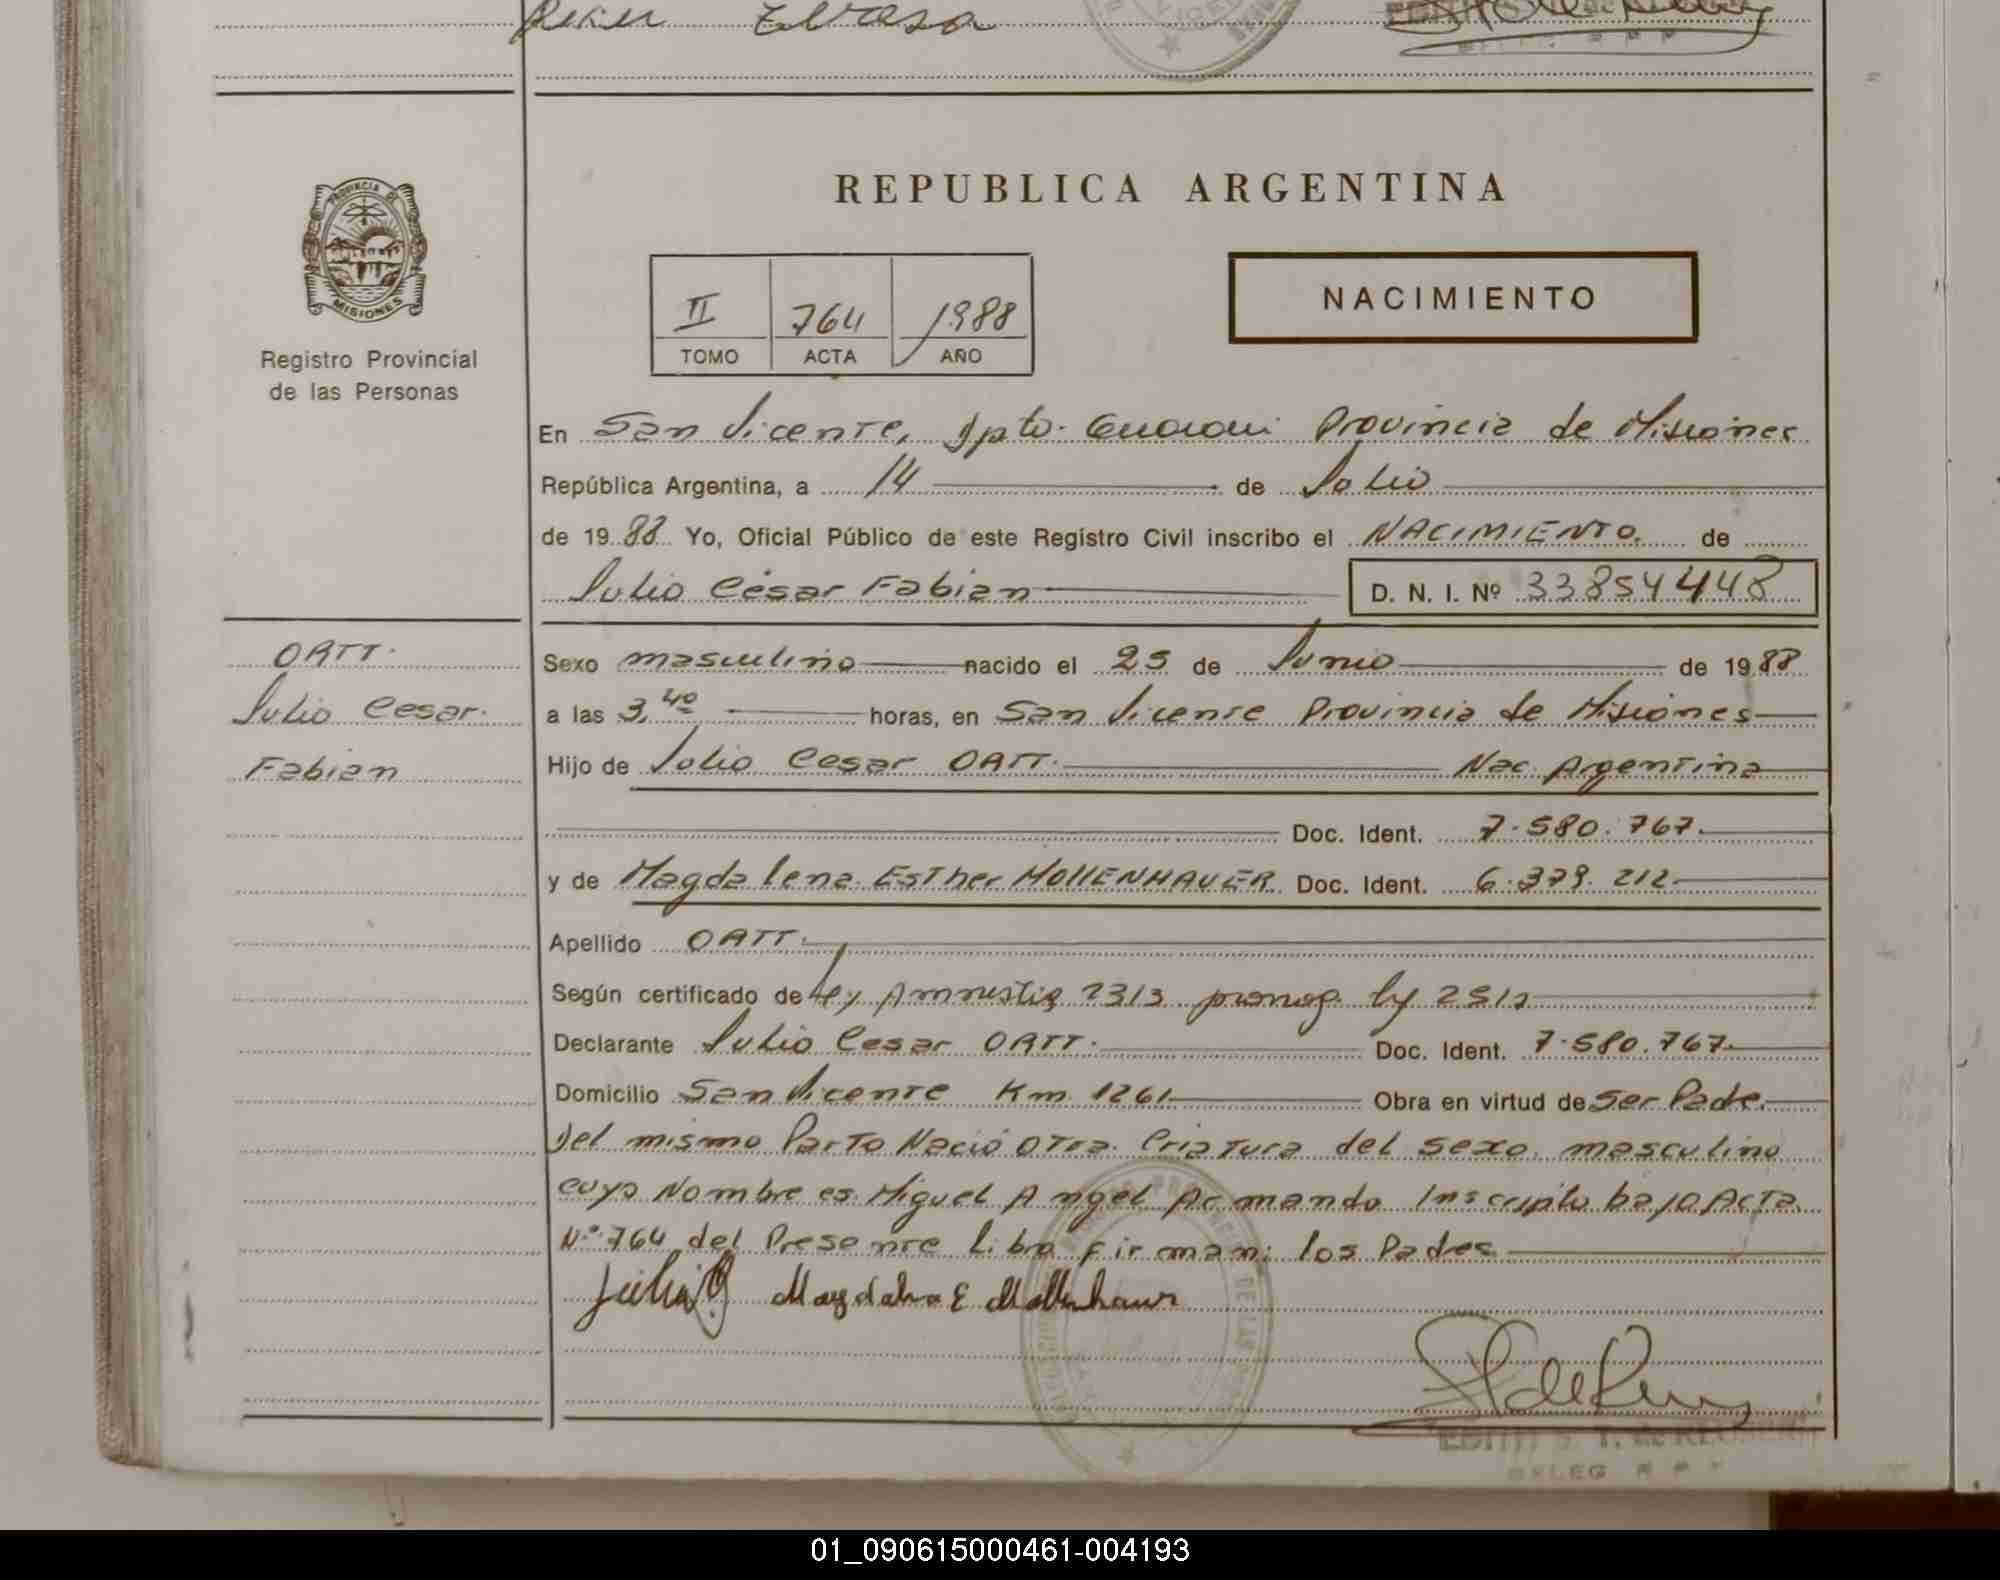 REPUBLICA ARGENTINA
PROVINCIA DE
MISIONES
Registro Provincial
de las Personas
II 764 1988
TOMO ACTA AÑO
NACIMIENTO
En San Vicente, Dpto. Guarani Provincia de Misiones
República Argentina, a 14 de Julio
de 19 88 Yo, Oficial Público de este Registro Civil inscribo el NACIMIENTO. de
Julio César Fabian D. N. I. Nº 33854448
OATT.
Julio Cesar.
Fabian
Sexo masculino nacido el 25 de Junio de 19 88
a las 3,40 horas, en San Vicente Provincia de Misiones
Hijo de Julio Cesar OATT. Nac. Argentina
Doc. Ident. 7.580.767.
y de Magdalena Esther MOLLENHAUER Doc. Ident. 6.379.212
Apellido OATT.
Según certificado de Ley Amnistia 2313 prorrog. ley 2512
Declarante Julio Cesar OATT. Doc. Ident. 7.580.767
Domicilio San Vicente Km 1261 Obra en virtud de Ser Padre.
Del mismo Parto Nació Otra Criatura del sexo masculino
cuyo Nombre es Miguel Angel Armando Inscripto bajo Acta
Nº 764 del Presente libro firman: los Padres
Magdalena E Mollenhauer
EDITH S. T. de
DELEG. R P P
01_090615000461-004193